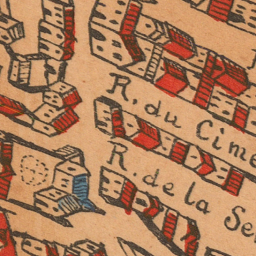 R. du Cime
R. de la Se